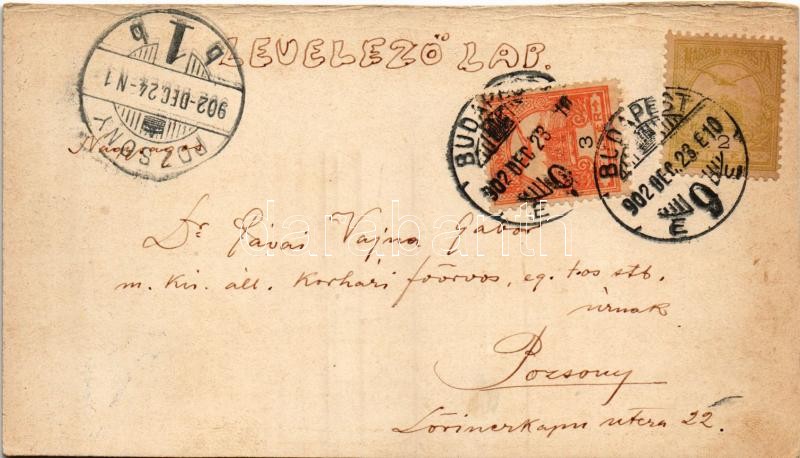 LEVELEZŐ LAP.
POZSONY
902-DEC.24-N1
1 b
b
MAGYAR KIR. POSTA
2
3
BUDAPEST
902 DEC. 23
É
9
BUDAPEST
902 DEC. 23 É10
É
9
Nagyságos
Dr Pávai Vajna Gábor
m. kir. áll. korházi főorvos, eg. t-os stb.
úrnak
Pozsony
Lőrinczkapu utcza 22.
darabanth